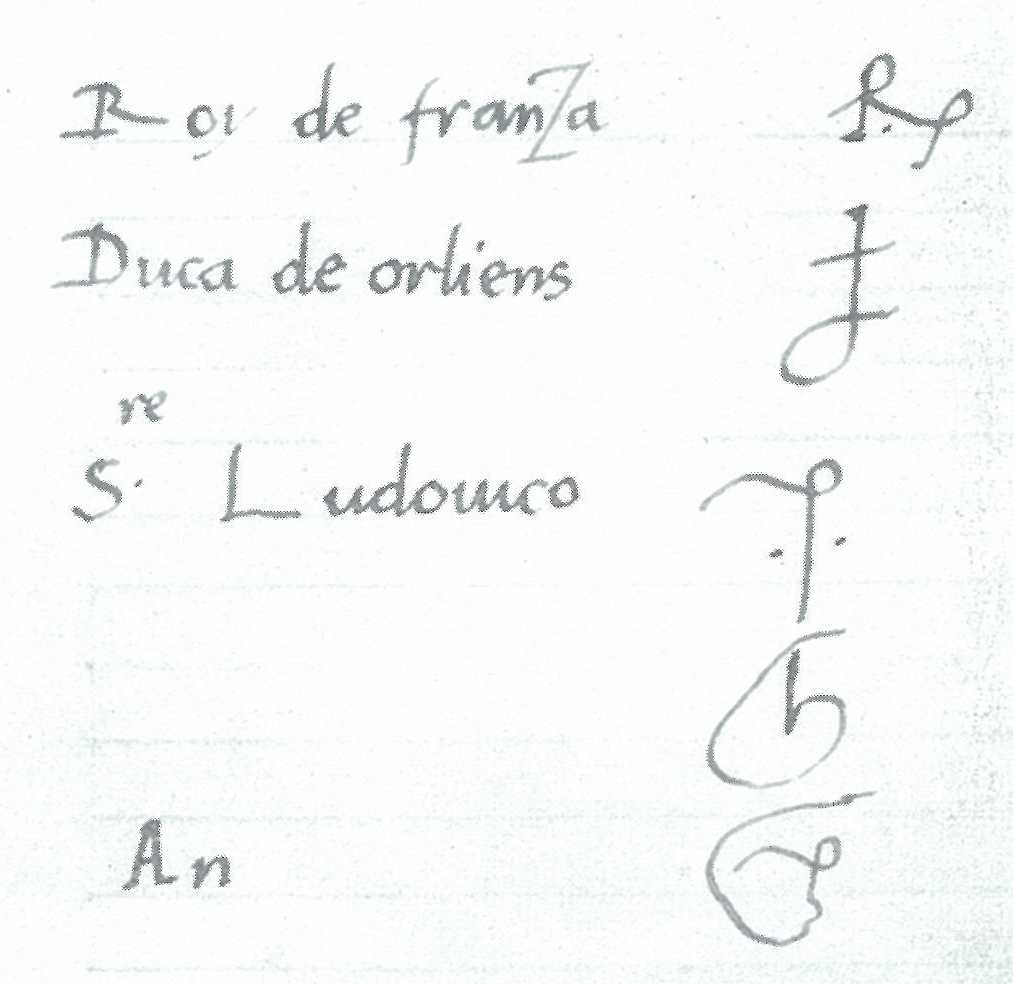 Roy de franza
Duca de orliens
S.re Ludouico
An